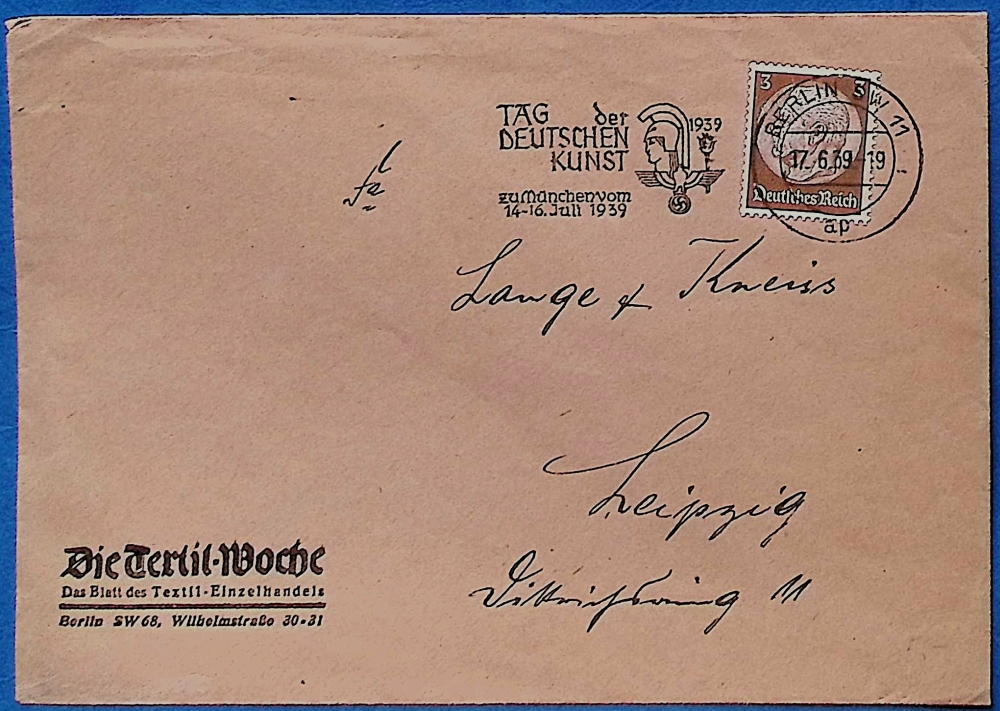 TAG der
DEUTSCHEN
KUNST
1939
zu München vom
14-16. Juli 1939
3 3
Deutsches Reich
BERLIN SW 11
17.6.39-19
ap
Fa
Lange & Kneiss
Leipzig
Dittrichring 11
Die Textil-Woche
Das Blatt des Textil-Einzelhandels
Berlin SW 68, Wilhelmstraße 30-31